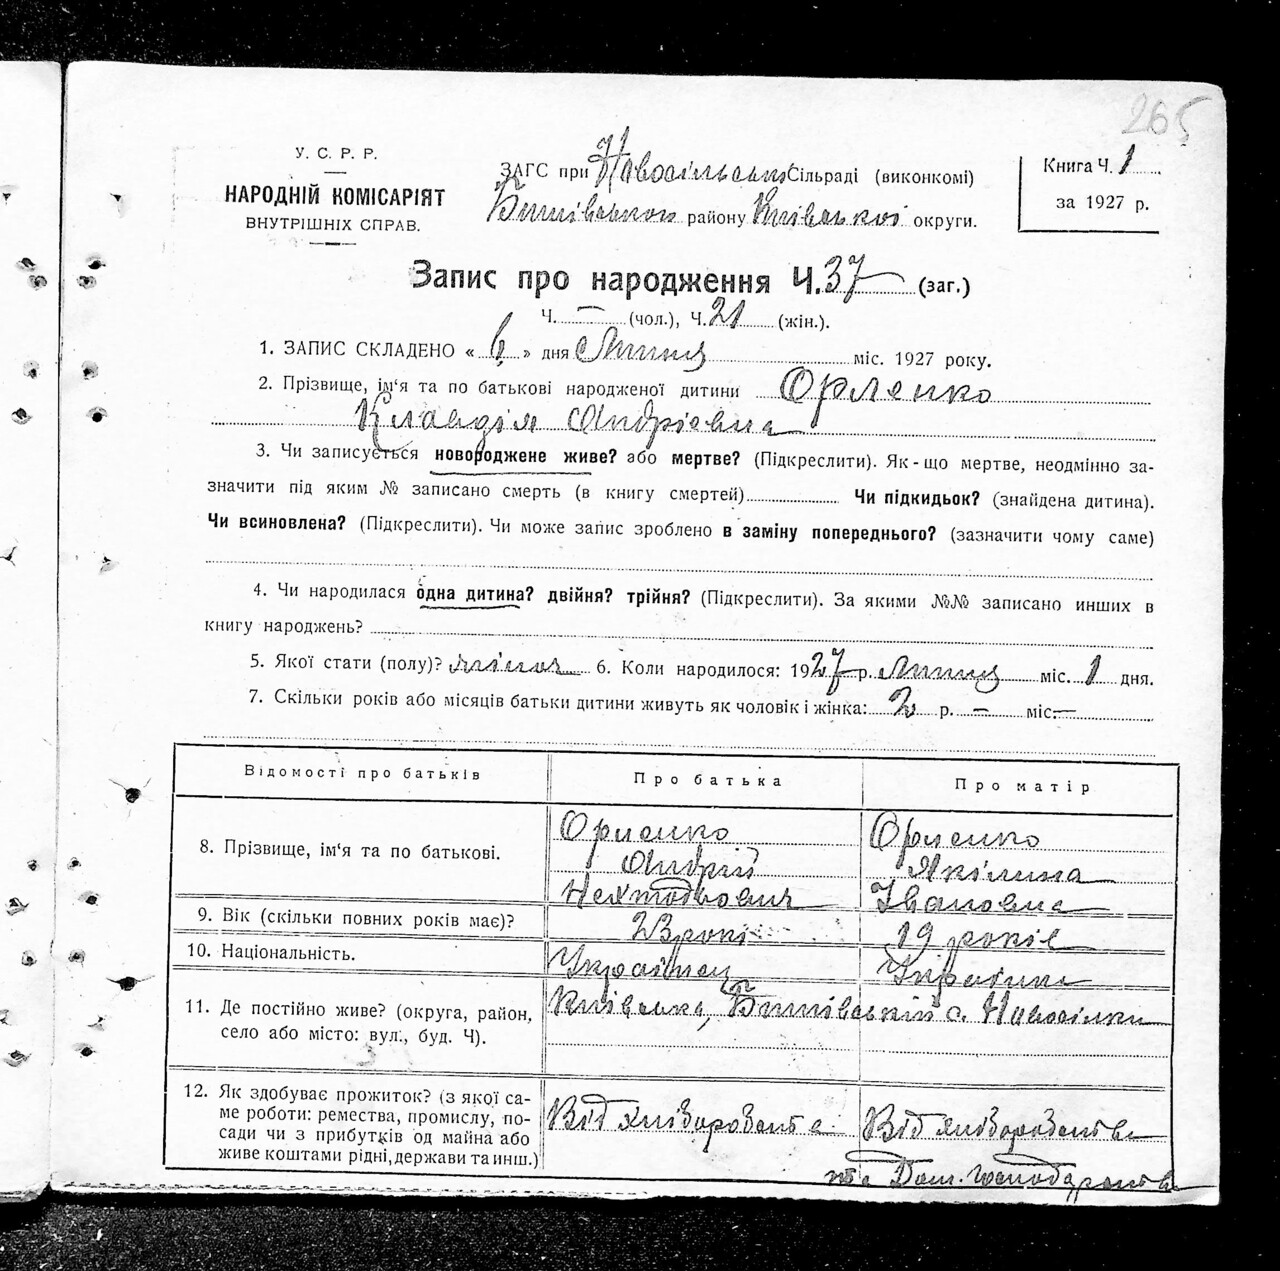 265
У. С. Р. Р.
НАРОДНІЙ КОМІСАРІЯТ
ВНУТРІШНІХ СПРАВ.
ЗАГС при Новосільській Сільраді (виконкомі)
Бишівського району Київської округи.
Книга Ч. 1
за 1927 р.
Запис про народження Ч. 37 (заг.)
Ч. — (чол.), Ч. 21 (жін.).
1. ЗАПИС СКЛАДЕНО « 6 » дня Липця міс. 1927 року.
2. Прізвище, ім'я та по батькові народженої дитини Орленко
Клавдія Андріевна
3. Чи записується новороджене живе? або мертве? (Підкреслити). Як-що мертве, неодмінно за-
значити під яким № записано смерть (в книгу смертей) Чи підкидьок? (знайдена дитина).
Чи всиновлена? (Підкреслити). Чи може запис зроблено в заміну попереднього? (зазначити чому саме)
4. Чи народилася одна дитина? двійня? трійня? (Підкреслити). За якими №№ записано инших в
книгу народжень?
5. Якої стати (полу)? жіноч 6. Коли народилося: 1927 р. Липця міс. 1 дня.
7. Скільки років або місяців батьки дитини живуть як чоловік і жінка: 2 р. — міс. —
Відомості про батьків
Про батька
Про матір
8. Прізвище, ім'я та по батькові.
Орленко
Андрій
Орленко
Якілина
Івановна
9. Вік (скільки повних років має)?
23 роки
19 років
10. Національність.
Українец
Українка
11. Де постійно живе? (округа, район,
село або місто: вул., буд. Ч).
Київська, Бишівський с. Новосілки
12. Як здобуває прожиток? (з якої са-
ме роботи: ремества, промислу, по-
сади чи з прибутків од майна або
живе коштами рідні, держави та инш.)
Від хліборобства
Від хліборобства
та Дом. господарства